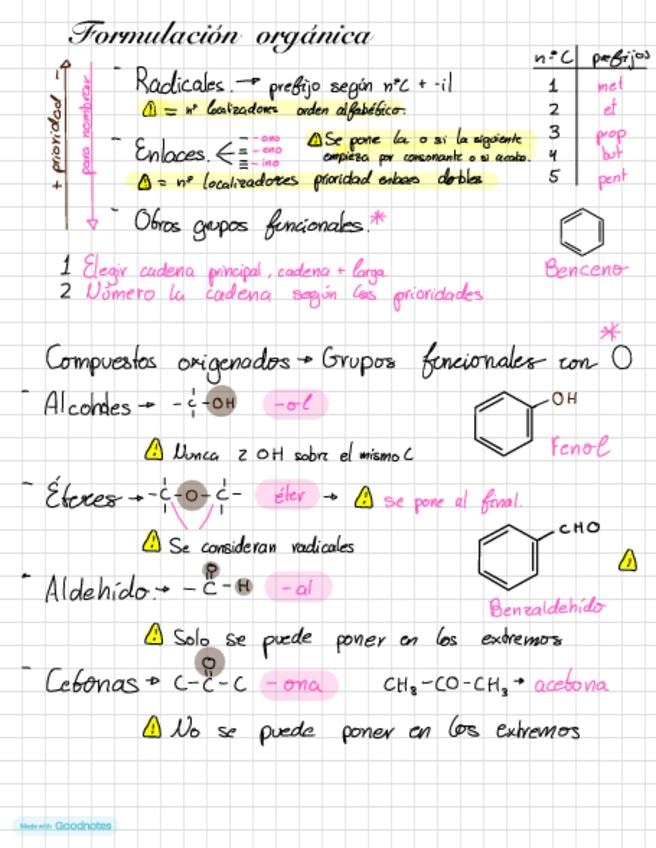 Formulación orgánica
+ prioridad -
para nombrar
- Radicales. → prefijo según nºC + -il
⚠ = nº localizadores orden alfabético.
- Enlaces. - -ano
= -eno
≡ -ino
⚠ Se pone la o si la siguiente
empieza por consonante o si acaba.
⚠ = nº localizadores prioridad enlaces dobles
- Otros grupos funcionales.*
nºC prefijos
1 met
2 et
3 prop
4 but
5 pent
Benceno
1 Elegir cadena principal, cadena + larga
2 Número la cadena según las prioridades
*
Compuestos oxigenados → Grupos funcionales con O
- Alcoholes → -C-OH -ol
OH
Fenol
⚠ Nunca 2 OH sobre el mismo C
- Éteres → -C-O-C- éter → ⚠ se pone al final.
⚠ Se consideran radicales
CHO
⚠
Benzaldehido
- Aldehído. → O
-C-H -al
⚠ Solo se puede poner en los extremos
- Cetonas → O
C-C-C -ona CH₃-CO-CH₃ → acetona
⚠ No se puede poner en los extremos
Made with Goodnotes